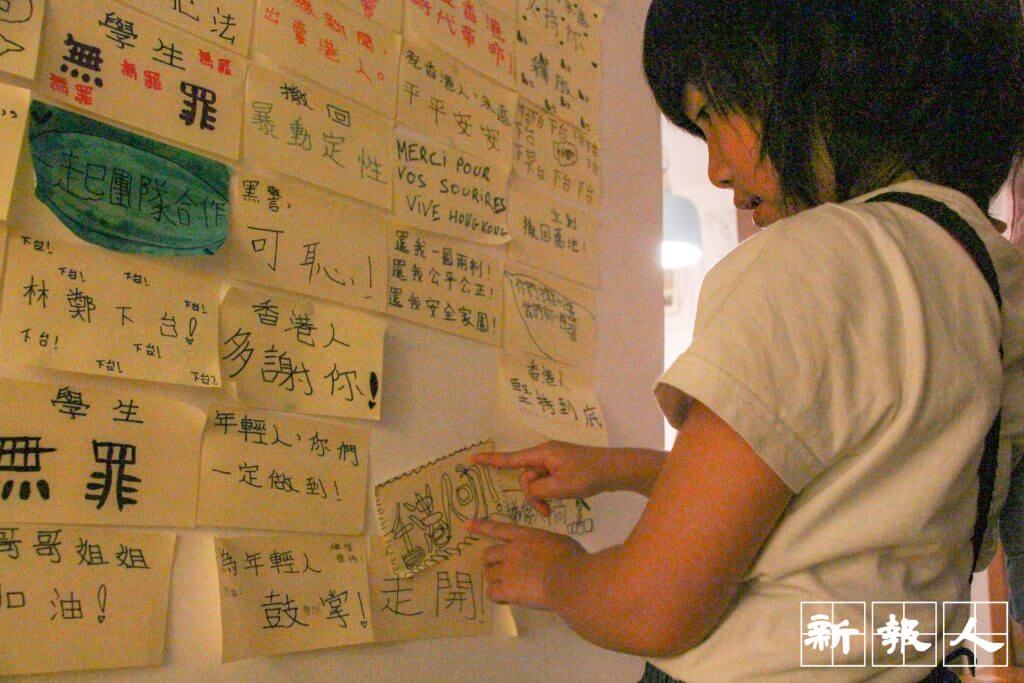 犯法
學生
無罪
無罪
無罪
無罪
一起團隊合作
下台!
林鄭下台!
下台!
下台!
下台!
下台!
下台!
學生
無罪
哥哥姐姐
加油!
出賣港人。
撤回
暴動定性
黑警,
可恥!
香港人
多謝你!
年輕人,你們
一定做到!
為年輕人
鼓掌!
時代革命!
平平安安
MERCI POUR
VOS SOURIRES
VIVE HONG KONG
還我一國兩制!
還我公平公正!
還我安全家園!
走開!
釋放
下台 下台
立刻
撤回惡法!
香港人
堅持到底
新報人